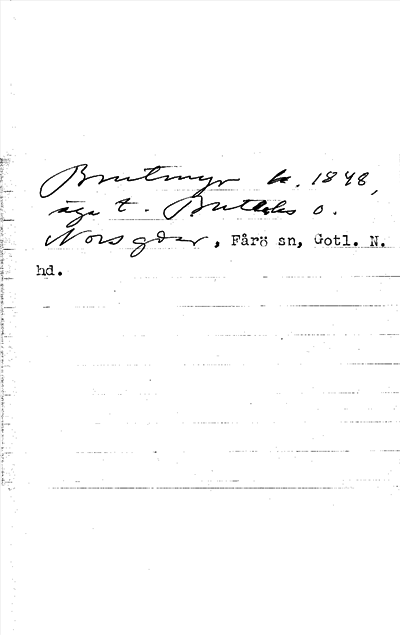 Brutmyr k. 1848,
äga t. Buttles o.
Nors gdar, Fårö sn, Gotl. N.
hd.